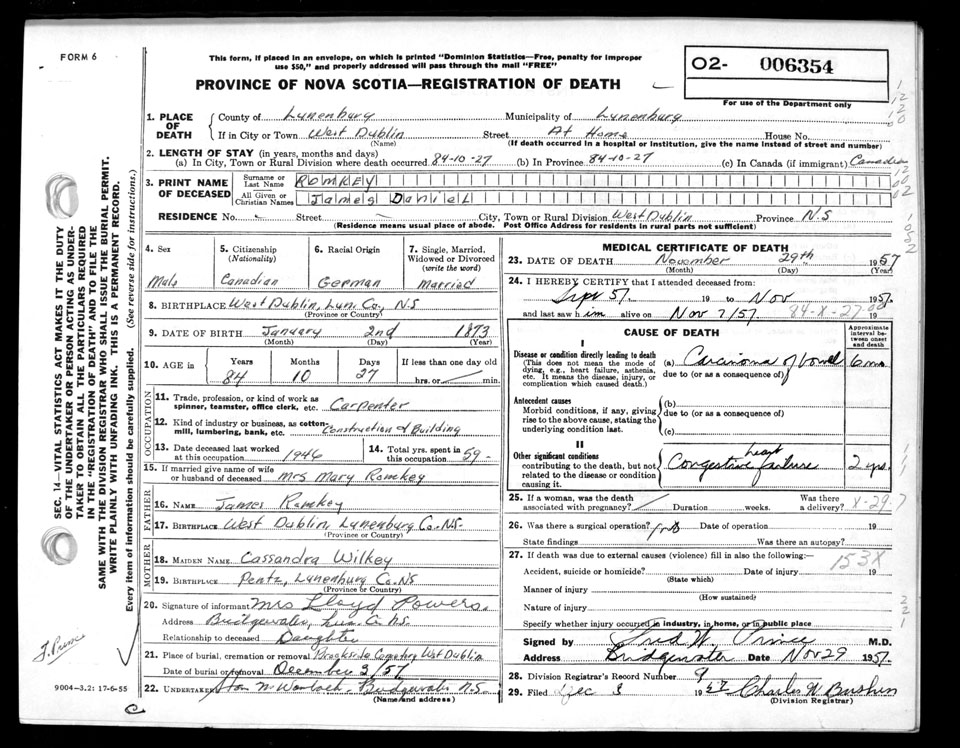 FORM 6
This form, if placed in an envelope, on which is printed "Dominion Statistics—Free, penalty for improper
use $50," and properly addressed will pass through the mail "FREE"
PROVINCE OF NOVA SCOTIA—REGISTRATION OF DEATH
02- 006354
For use of the Department only
SEC. 14—VITAL STATISTICS ACT MAKES IT THE DUTY
OF THE UNDERTAKER OR PERSON ACTING AS UNDER-
TAKER TO OBTAIN ALL THE PARTICULARS REQUIRED
IN THE "REGISTRATION OF DEATH" AND TO FILE THE
SAME WITH THE DIVISION REGISTRAR WHO SHALL ISSUE THE BURIAL PERMIT.
WRITE PLAINLY WITH UNFADING INK. THIS IS A PERMANENT RECORD.
Every item of information should be carefully supplied. (See reverse side for instructions.)
1. PLACE OF DEATH County of Lunenburg Municipality of Lunenburg
If in City or Town West Dublin Street At Home House No.
(Name) (If death occurred in a hospital or institution, give the name instead of street and number)
2. LENGTH OF STAY (in years, months and days)
(a) In City, Town or Rural Division where death occurred 84-10-27 (b) In Province 84-10-27 (c) In Canada (if immigrant) Canadian
3. PRINT NAME OF DECEASED Surname or Last Name ROMKEY
All Given or Christian Names James Daniel
RESIDENCE No. Street City, Town or Rural Division West Dublin Province N.S
(Residence means usual place of abode. Post Office Address for residents in rural parts not sufficient)
4. Sex Male
5. Citizenship (Nationality) Canadian
6. Racial Origin German
7. Single, Married, Widowed or Divorced (write the word) Married
8. BIRTHPLACE West Dublin, Lun. Co., N.S
(Province or Country)
9. DATE OF BIRTH January 2nd 1873
(Month) (Day) (Year)
10. AGE in Years 84 Months 10 Days 27 If less than one day old hrs. or min.
OCCUPATION
11. Trade, profession, or kind of work as spinner, teamster, office clerk, etc. Carpenter
12. Kind of industry or business, as cotton-mill, lumbering, bank, etc. Construction & Building
13. Date deceased last worked at this occupation 1946
14. Total yrs. spent in this occupation 59-
15. If married give name of wife or husband of deceased Mrs Mary Romkey
FATHER
16. NAME James Romkey
17. BIRTHPLACE West Dublin, Lunenburg Co. N.S.
(Province or Country)
MOTHER
18. MAIDEN NAME Cassandra Wilkey
19. BIRTHPLACE Pentz, Lunenburg Co. NS
(Province or Country)
20. Signature of informant Mrs Lloyd Powers.
Address Bridgewater, Lun. Co. N.S.
Relationship to deceased Daughter
21. Place of burial, cremation or removal Brookside Cemetery West Dublin
Date of burial or removal December 2/57
22. Undertaker Bridgewater N.S.
(Name and address)
J. Prince
9004—3.2: 17-6-55
MEDICAL CERTIFICATE OF DEATH
23. DATE OF DEATH November 29th 1957
(Month) (Day) (Year)
24. I HEREBY CERTIFY that I attended deceased from:
Sept 57. 19 to Nov 1957.
and last saw him alive on Nov 7/57. 19
84-X-27
CAUSE OF DEATH
Approximate interval between onset and death
I
Disease or condition directly leading to death
(This does not mean the mode of dying, e.g., heart failure, asthenia, etc. It means the disease, injury, or complication which caused death.)
(a) Carcinoma of bowel 6 mo
due to (or as a consequence of)
Antecedent causes
Morbid conditions, if any, giving rise to the above cause, stating the underlying condition last.
(b)
due to (or as a consequence of)
(c)
II
Other significant conditions
contributing to the death, but not related to the disease or condition causing it.
Congestive heart failure 2 yrs.
25. If a woman, was the death associated with pregnancy? Duration weeks. Was there a delivery?
X-29
26. Was there a surgical operation? Date of operation 19
State findings Was there an autopsy?
27. If death was due to external causes (violence) fill in also the following:—
153X
Accident, suicide or homicide? Date of injury 19
(State which)
Manner of injury
(How sustained)
Nature of injury
Specify whether injury occurred in industry, in home, or in public place
Signed by Fred W. Prince M.D.
Address Bridgewater Date Nov 29 1957.
28. Division Registrar's Record Number 9
29. Filed Dec 3 1957
(Division Registrar)